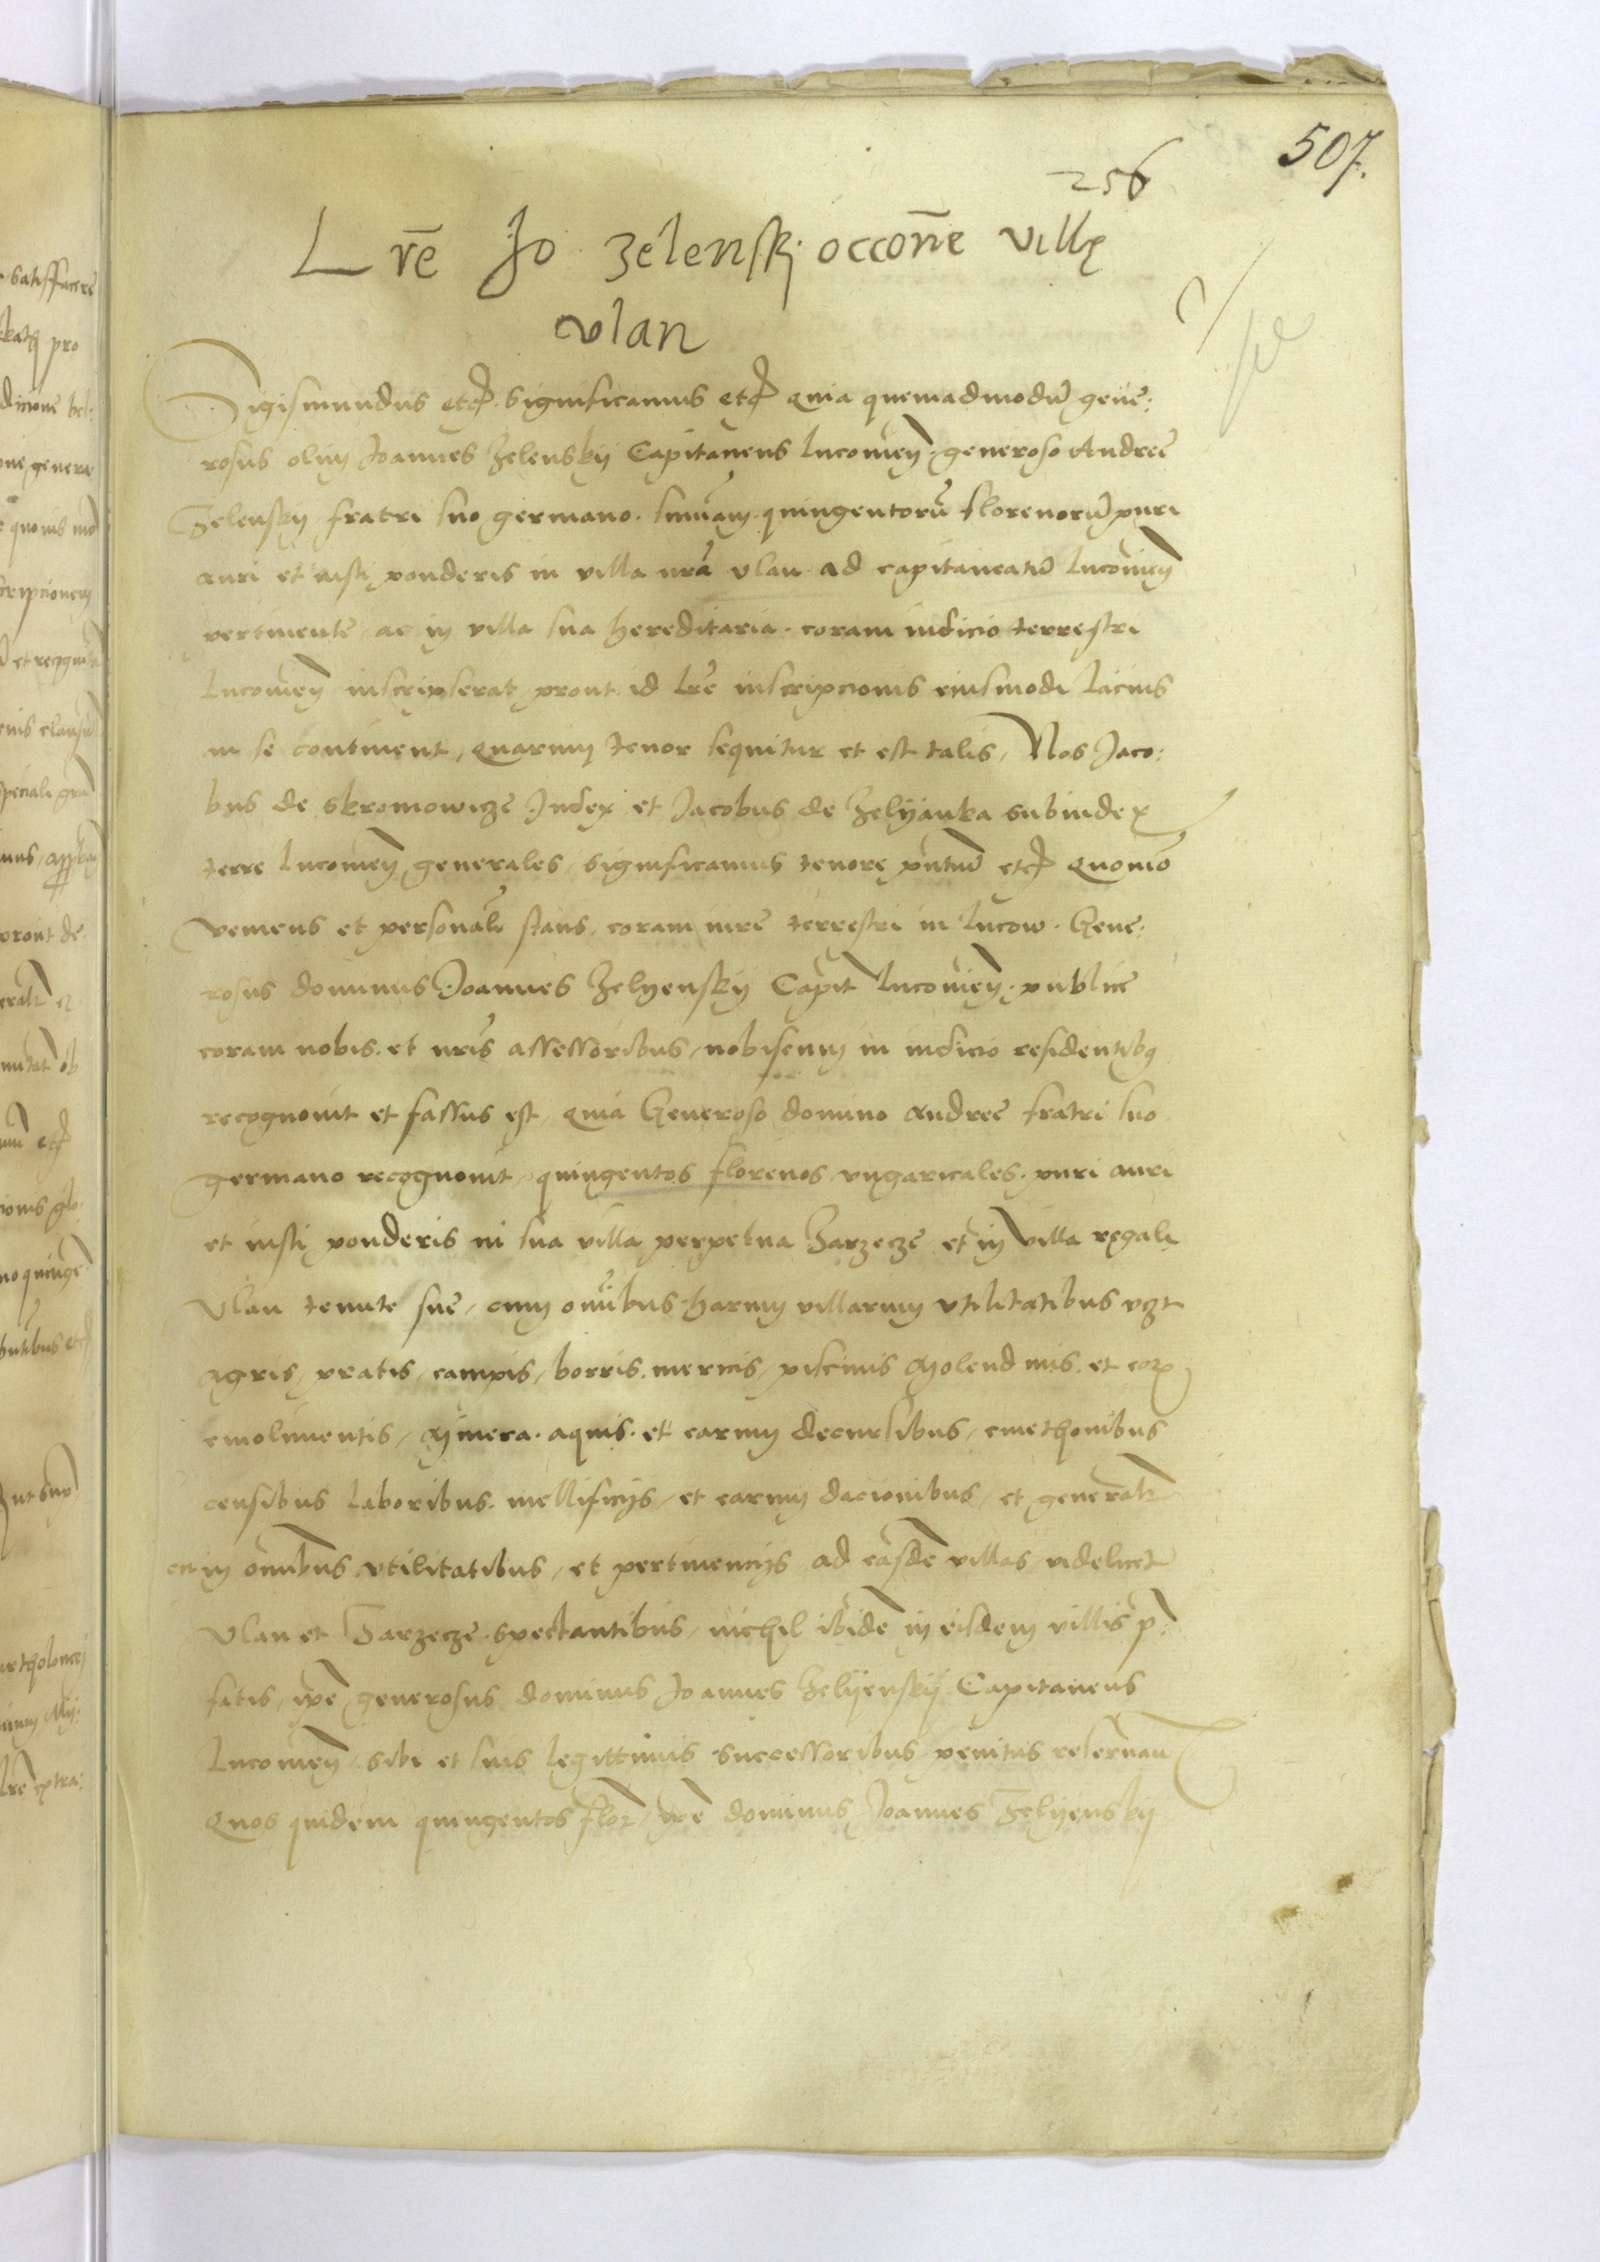 507.
256
Lrē Jo zelenskj occōne villę
vlan
Sigismundus etcꝫ. Significamus etcꝫ quia quemadmodū gene:
rosus olim Joannes Zelenskij Capitaneus Lucovieñ. generoso Andree
Zelenskij fratri suo germano. sum̄am. quingentorū florenorū puri
auri et iusti ponderis in villa nrā vlan ad capitaneatū Lucovieñ
pertinente ac in villa sua hereditaria. coram iudicio terrestri
Lucovieñ inscripserat prout id lrē inscripcionis eiusmodi lacius
in se continent, quarum tenor sequitur et est talis, Nos Jaco:
bus de Skromowicze Judex et Jacobus de Zelijanka subiudex
terre Lucovieñ generales, significamus tenore pn̄tiū etcꝫ Quomō
veniens et personalr̄ stans, coram iure terrestri in Lucow. Gene:
rosus dominus Joannes Zelyenskij Capit̄ Lucovieñ. publice
coram nobis. et nrīs assessoribus, nobiscum in iudicio residentibꝫ
recognovit et fassus est, quia Generoso domino Andree fratri suo
germano recognovit, quingentos florenos ungaricales. puri auri
et iusti ponderis in sua villa perpetua Zarzecze et in villa regali
Vlan tenute sue, cum om̄ibus harum villarum utilitatibus vꝫt
agris, pratis, campis, borris. mericis, piscinis Molendinis. et eoꝝ
emolimentis, Minera. aquis. et earum decursibus, cmethonibus
censibus laboribus. mellificijs, et earum dacionibus, et generalr̄
cum om̄ibus utilitatibus, et pertinencijs ad easdē villas videlicet
Vlan et Zarzecze spectantibus, nichil ibidē in eisdem villis p̄:
fatis, ip̄e generosus dominus Joannes Zelijenskij Capitaneus
Lucovieñ, sibi et suis legittimis successoribus penitus reservan̄
Quos quidem quingentos flor̄, ip̄e dominus Joannes Zelijenskij